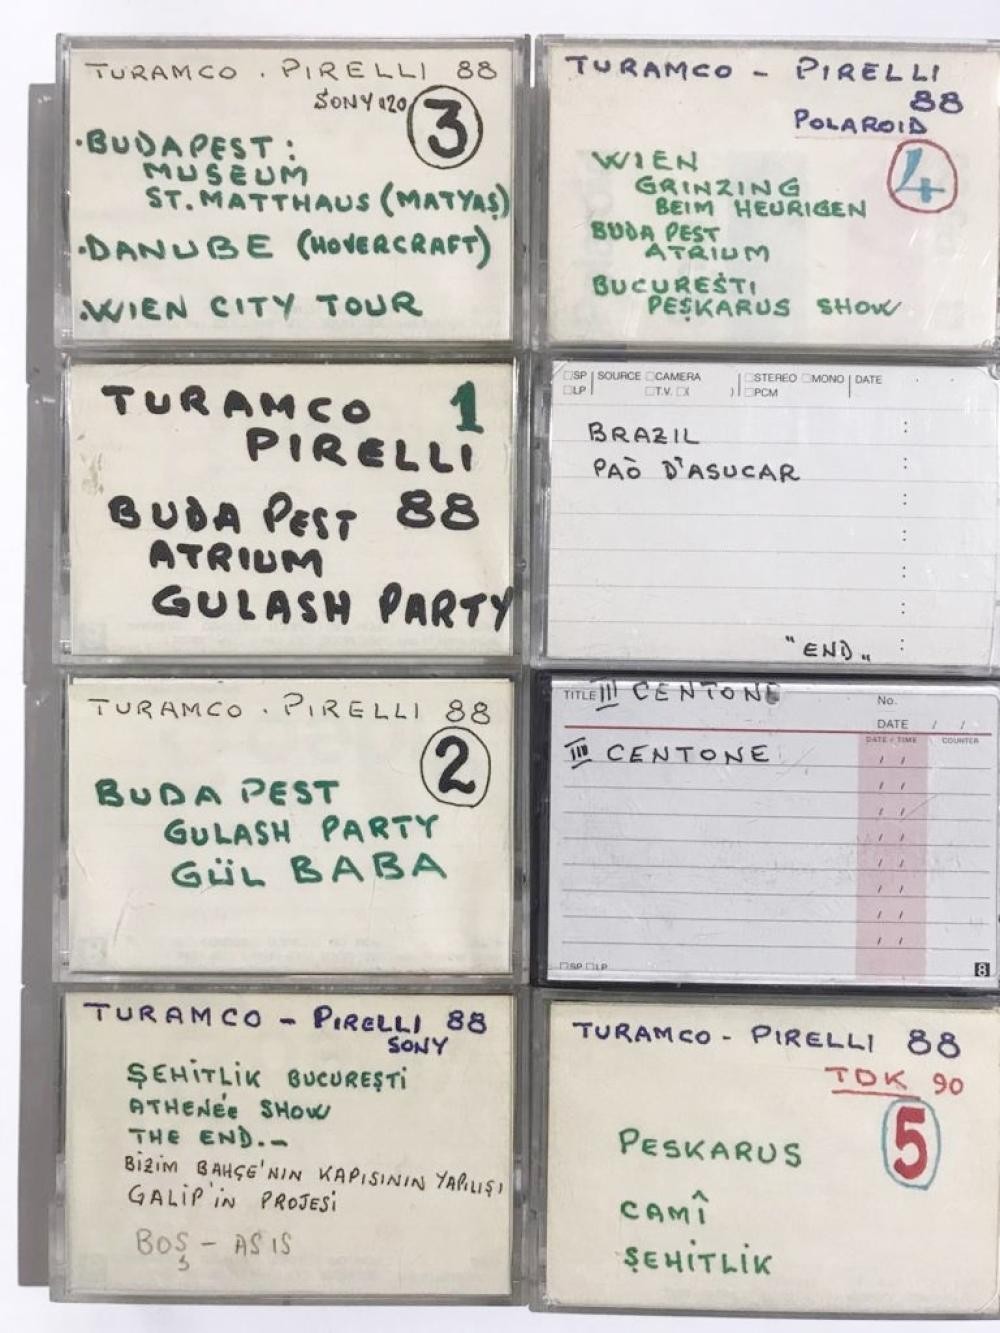 TURAMCO . PIRELLI 88
SONY 120
3
·BUDAPEST:
MUSEUM
ST. MATTHAUS (MATYAŞ)
·DANUBE (HOVERCRAFT)
·WIEN CITY TOUR
TURAMCO - PIRELLI
88
POLAROID
4
WIEN
GRINZING
BEIM HEURIGEN
BUDA PEST
ATRIUM
BUCUREŞTI
PEŞKARUS SHOW
TURAMCO 1
PIRELLI
BUDA PEST 88
ATRIUM
GULASH PARTY
□SP SOURCE □CAMERA □STEREO □MONO DATE
□LP □T.V. □( ) □PCM
BRAZIL
PAÒ D'ASUCAR
"END„
TURAMCO . PIRELLI 88
2
BUDA PEST
GULASH PARTY
GÜL BABA
TITLE III CENTONE
No.
DATE / /
DATE / TIME COUNTER
III CENTONE
□SP □LP
8
TURAMCO - PIRELLI 88
SONY
ŞEHİTLİK BUCUREŞTİ
ATHENÉE SHOW
THE END.-
BİZİM BAHÇE'NİN KAPISININ YAPILIŞI
GALİP'İN PROJESİ
BOŞ - ASIS
TURAMCO - PIRELLI 88
TDK 90
5
PESKARUS
CAMÎ
ŞEHİTLİK